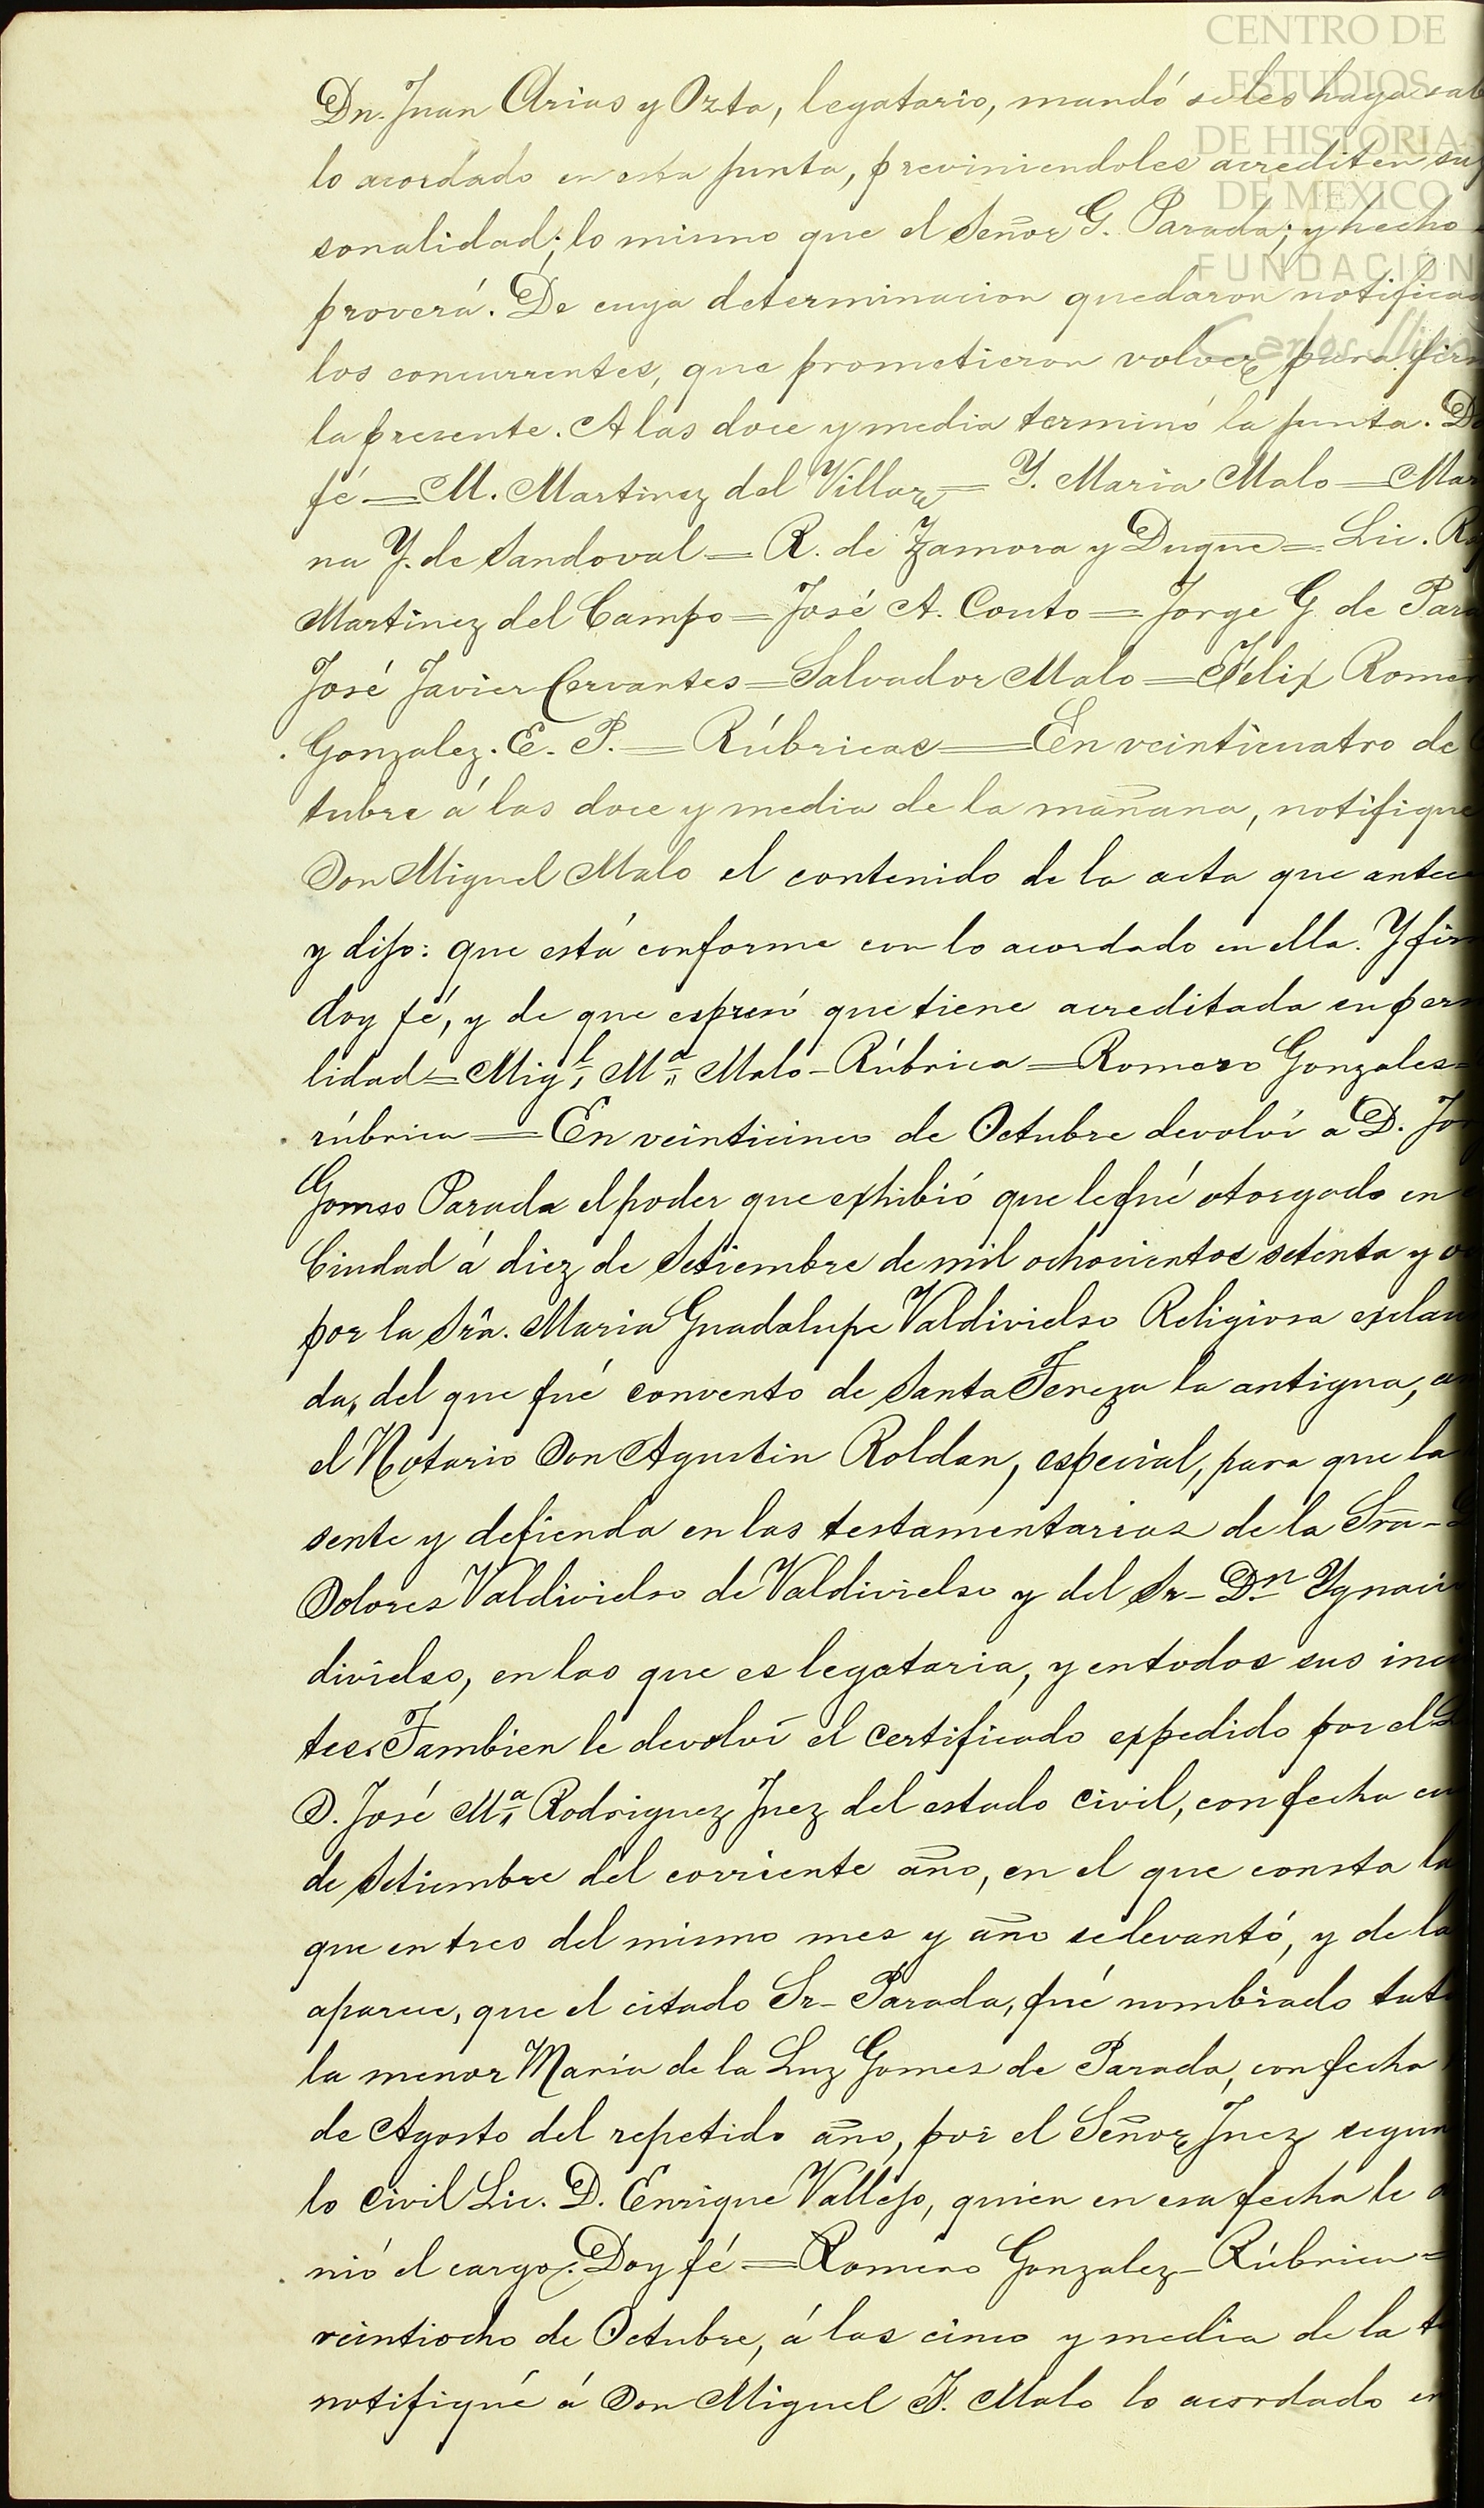 CENTRO DE
ESTUDIOS
DE HISTORIA
DE MEXICO
FUNDACIÓN
Dn. Juan Arias y Ozta, legatario, mandó se les haga sab
lo acordado en esta junta, previniendoles acrediten su p
sonalidad; lo mismo que el Señor G. Parada; y hecho
proverá. De cuya determinacion quedaron notifica
los concurrentes, que prometieron volver para fir
la presente. A las doce y media terminó la junta. D
fé = M. Martinez del Villar = Y. Maria Malo = Mar
na Y. de Sandoval = R. de Zamora y Duque = Lic. R
Martinez del Campo = José A. Couto = Jorge G. de Para
José Javier Cervantes = Salvador Malo = Félix Romer
Gonzalez. E. P. = Rúbricas = En veinticuatro de
tubre á las doce y media de la mañana, notifique
Don Miguel Malo el contenido de la acta que antec
y dijo: que está conforme con lo acordado en ella. Y fir
doy fé, y de que espresó que tiene acreditada su pers
lidad = Migl. Ma. Malo - Rúbrica = Romero Gonzales =
rúbrica = En veinticinco de Octubre devolví a D. Jo
Gomes Parada el poder que exhibió que le fué otorgado en
Ciudad á diez de Setiembre de mil ochocientos setenta y o
por la Sra. Maria Guadalupe Valdivielso Religiosa exclau
da, del que fué convento de Santa Tereza la antigua, a
el Notario Don Agustin Roldan, especial, para que la
sente y defienda en las testamentarias de la Sra-
Dolores Valdivielso de Valdivielso y del Sr- Dn Ygnaci
divielso, en las que es legataria, y en todos sus inci
tes. Tambien le devolví el certificado expedido por el
D. José Ma. Rodriguez Juez del estado civil, con fecha cu
de Setiembre del corriente año, en el que consta la
que en tres del mismo mes y año se levantó, y de la
aparece, que el citado Sr- Parada, fué nombrado tut
la menor María de la Luz Gomes de Parada, con fecha
de Agosto del repetido año, por el Señor Juez segun
lo civil Lic. D. Enrique Vallejo, quien en esa fecha le
nió el cargo. Doy fé = Romero Gonzalez - Rúbrica =
veintiocho de Octubre, á las cinco y media de la t
notifiqué á Don Miguel F. Malo lo acordado en